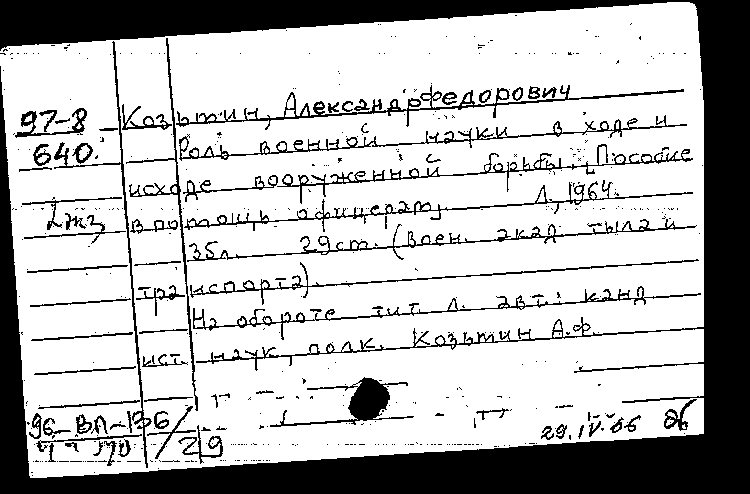 97-8 Козьтин, Александр Федорович
640. Роль военной науки в ходе и
исходе вооруженной борьбы. [Пособие
в помощь офицерам]. Л., 1964.
35л. 29ст. (Воен. акад. тыла и
транспорта).
На обороте тит. л. авт.: канд.
ист. наук, полк. Козьтин А.Ф.
96-ВЛ-136
/29
29.IV.66